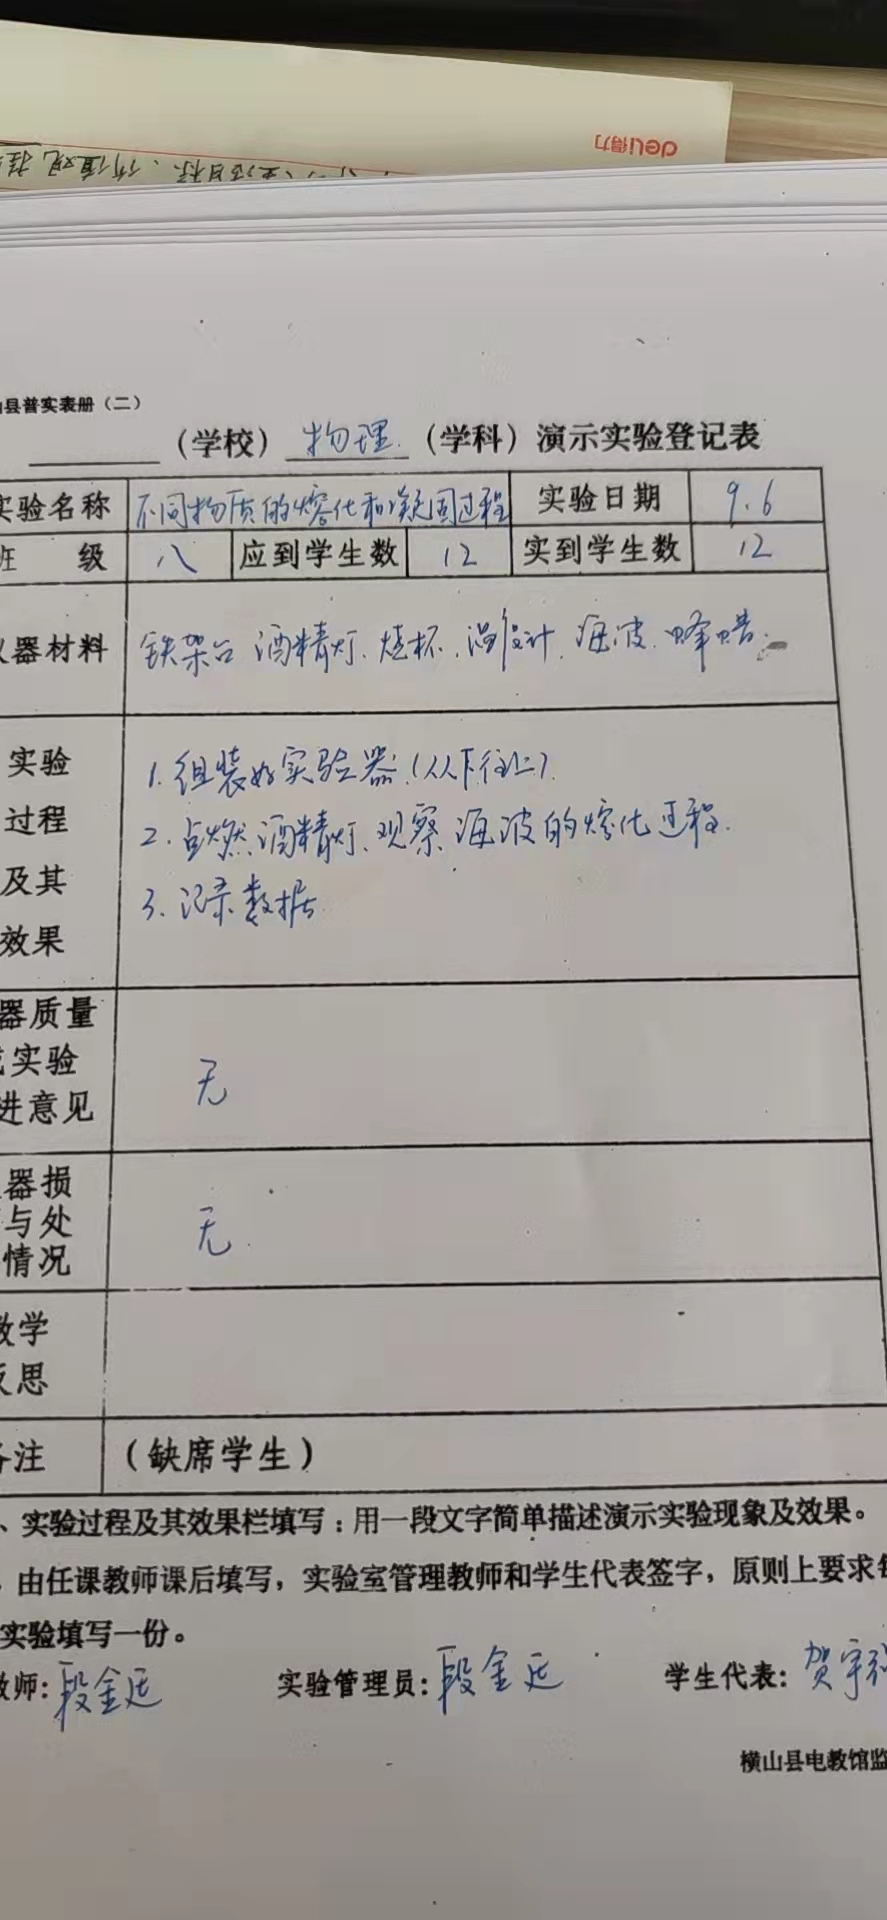 deli得力
县普实表册（二）
（学校）物理（学科）演示实验登记表
实验名称 不同物质的熔化和凝固过程 实验日期 9.6
班 级 八 应到学生数 12 实到学生数 12
器材料 铁架台 酒精灯、烧杯、温度计、海波、蜂蜡
实验
过程
及其
效果
1.组装好实验器(从下往上)
2.点燃酒精灯、观察海波的熔化过程.
3.记录数据
器质量
实验
进意见
无
器损
与处
情况
无
教学
反思
备注 （缺席学生）
、实验过程及其效果栏填写：用一段文字简单描述演示实验现象及效果。
由任课教师课后填写，实验室管理教师和学生代表签字，原则上要求每
实验填写一份。
教师：段金廷 实验管理员：段金廷 学生代表：贺宇
横山县电教馆监